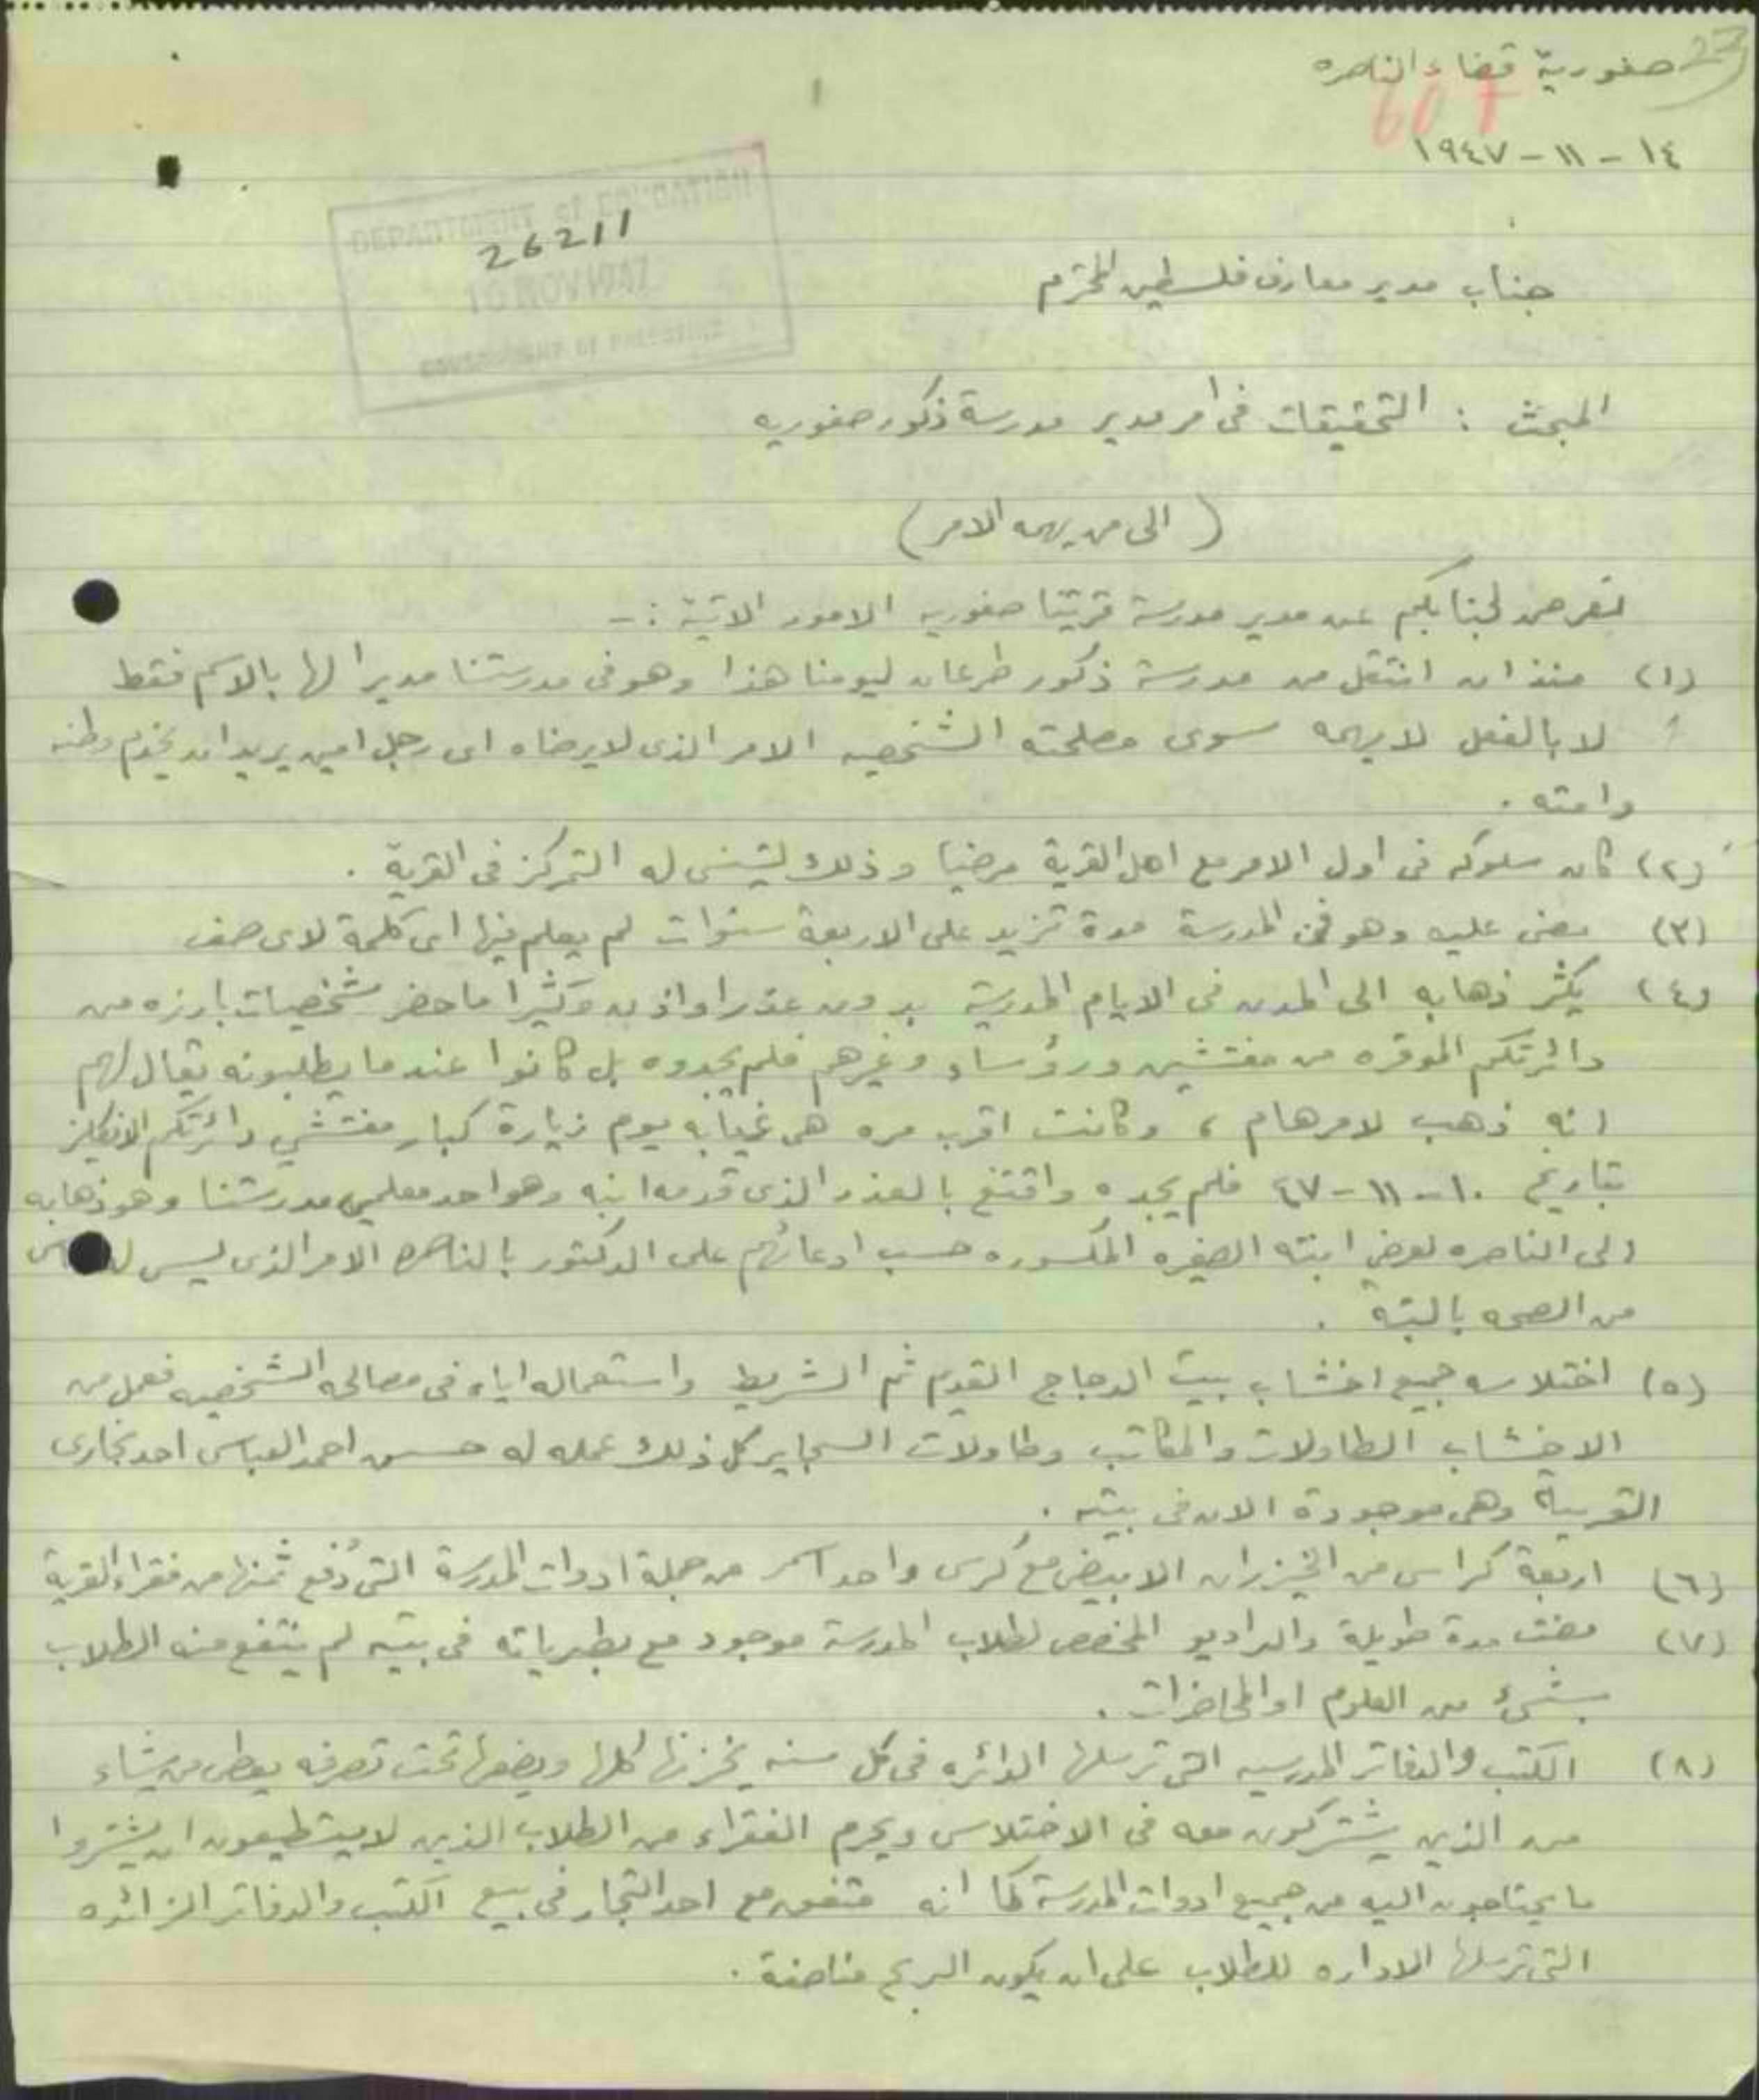 27
صفورية قضاء الناصره
607
١٤ - ١١ - ١٩٤٧
DEPARTMENT of EDUCATION
26211
NOV 1947
GOVERNMENT OF PALESTINE
جناب مدير معارف فلسطين المحترم
المبحث : التحقيقات فى امر مدير مدرسة ذكور صفوريه
( الى من يهمه الامر )
نعرض لجنابكم عن مدير مدرسة قريتنا صفوريه الامور الاتية :-
(١) منذ ان انتقل من مدرسة ذكور طرعان ليومنا هذا وهو فى مدرستنا مديرا لها بالاسم فقط
لا بالفعل لا يهمه سوى مصلحته الشخصيه الامر الذى لا يرضاه اى رجل امين يريد ان يخدم وطنه
وامته .
(٢) كان سلوكه فى اول الامر مع اهل القرية مرضيا وذلك ليتسنى له التمركز فى القرية .
(٣) مضى عليه وهو فى المدرسة مدة تزيد على الاربعة سنوات لم يعلم فيها اى كلمة لاى صف
(٤) يكثر ذهابه الى المدن فى الايام المدرسية بدون عذر او اذن وكثيرا ما حضر شخصيات بارزه من
دائرتكم الموقره من مفتشين ورؤساء وغيرهم فلم يجدوه بل كانوا عندما يطلبونه يقال لهم
انه ذهب لامر هام ، وكانت اقرب مره هى غيابه يوم زيارة كبار مفتشي دائرتكم الانكليز
بتاريخ ١٠ - ١١ - ٤٧ فلم يجده واقتنع بالعذر الذى قدمه ابنه وهو احد معلمي مدرستنا وهو ذهابه
الى الناصره لعرض ابنته الصغيره المكسوره حسب ادعائهم على الدكتور بالناصره الامر الذى ليس له
من الصحه بالبته .
(٥) اختلاسه جميع اخشاب بيت الدجاج القديم ثم الشريط واستعماله اياه فى مصالحه الشخصيه فعمل من
الاخشاب الطاولات والمكاتب وطاولات السجاير كل ذلك عمله له حسن احمد العباسى احد نجارى
القرية وهى موجودة الان فى بيته .
(٦) اربعة كراسى من الخيزران الابيض مع كرسى واحد اسمر من جملة ادوات المدرسة التى دُفع ثمنها من فقراء القرية
(٧) مضت مدة طويلة والراديو المخصص لطلاب المدرسة موجود مع بطيرياته فى بيته لم ينتفع منه الطلاب
بشىء من العلوم او المحاضرات .
(٨) الكتب والدفاتر المدرسيه التى ترسلها الدائره فى كل سنه يخزنها كلها ويضعها تحت تصرفه يعطى من يشاء
من الذين يشتركون معه فى الاختلاس ويحرم الفقراء من الطلاب الذين لا يستطيعون ان يشتروا
ما يحتاجون اليه من جميع ادوات المدرسة كما انه متفق مع احد التجار فى بيع الكتب والدفاتر الزائده
التى ترسلها الاداره للطلاب على ان يكون الربح مناصفة .